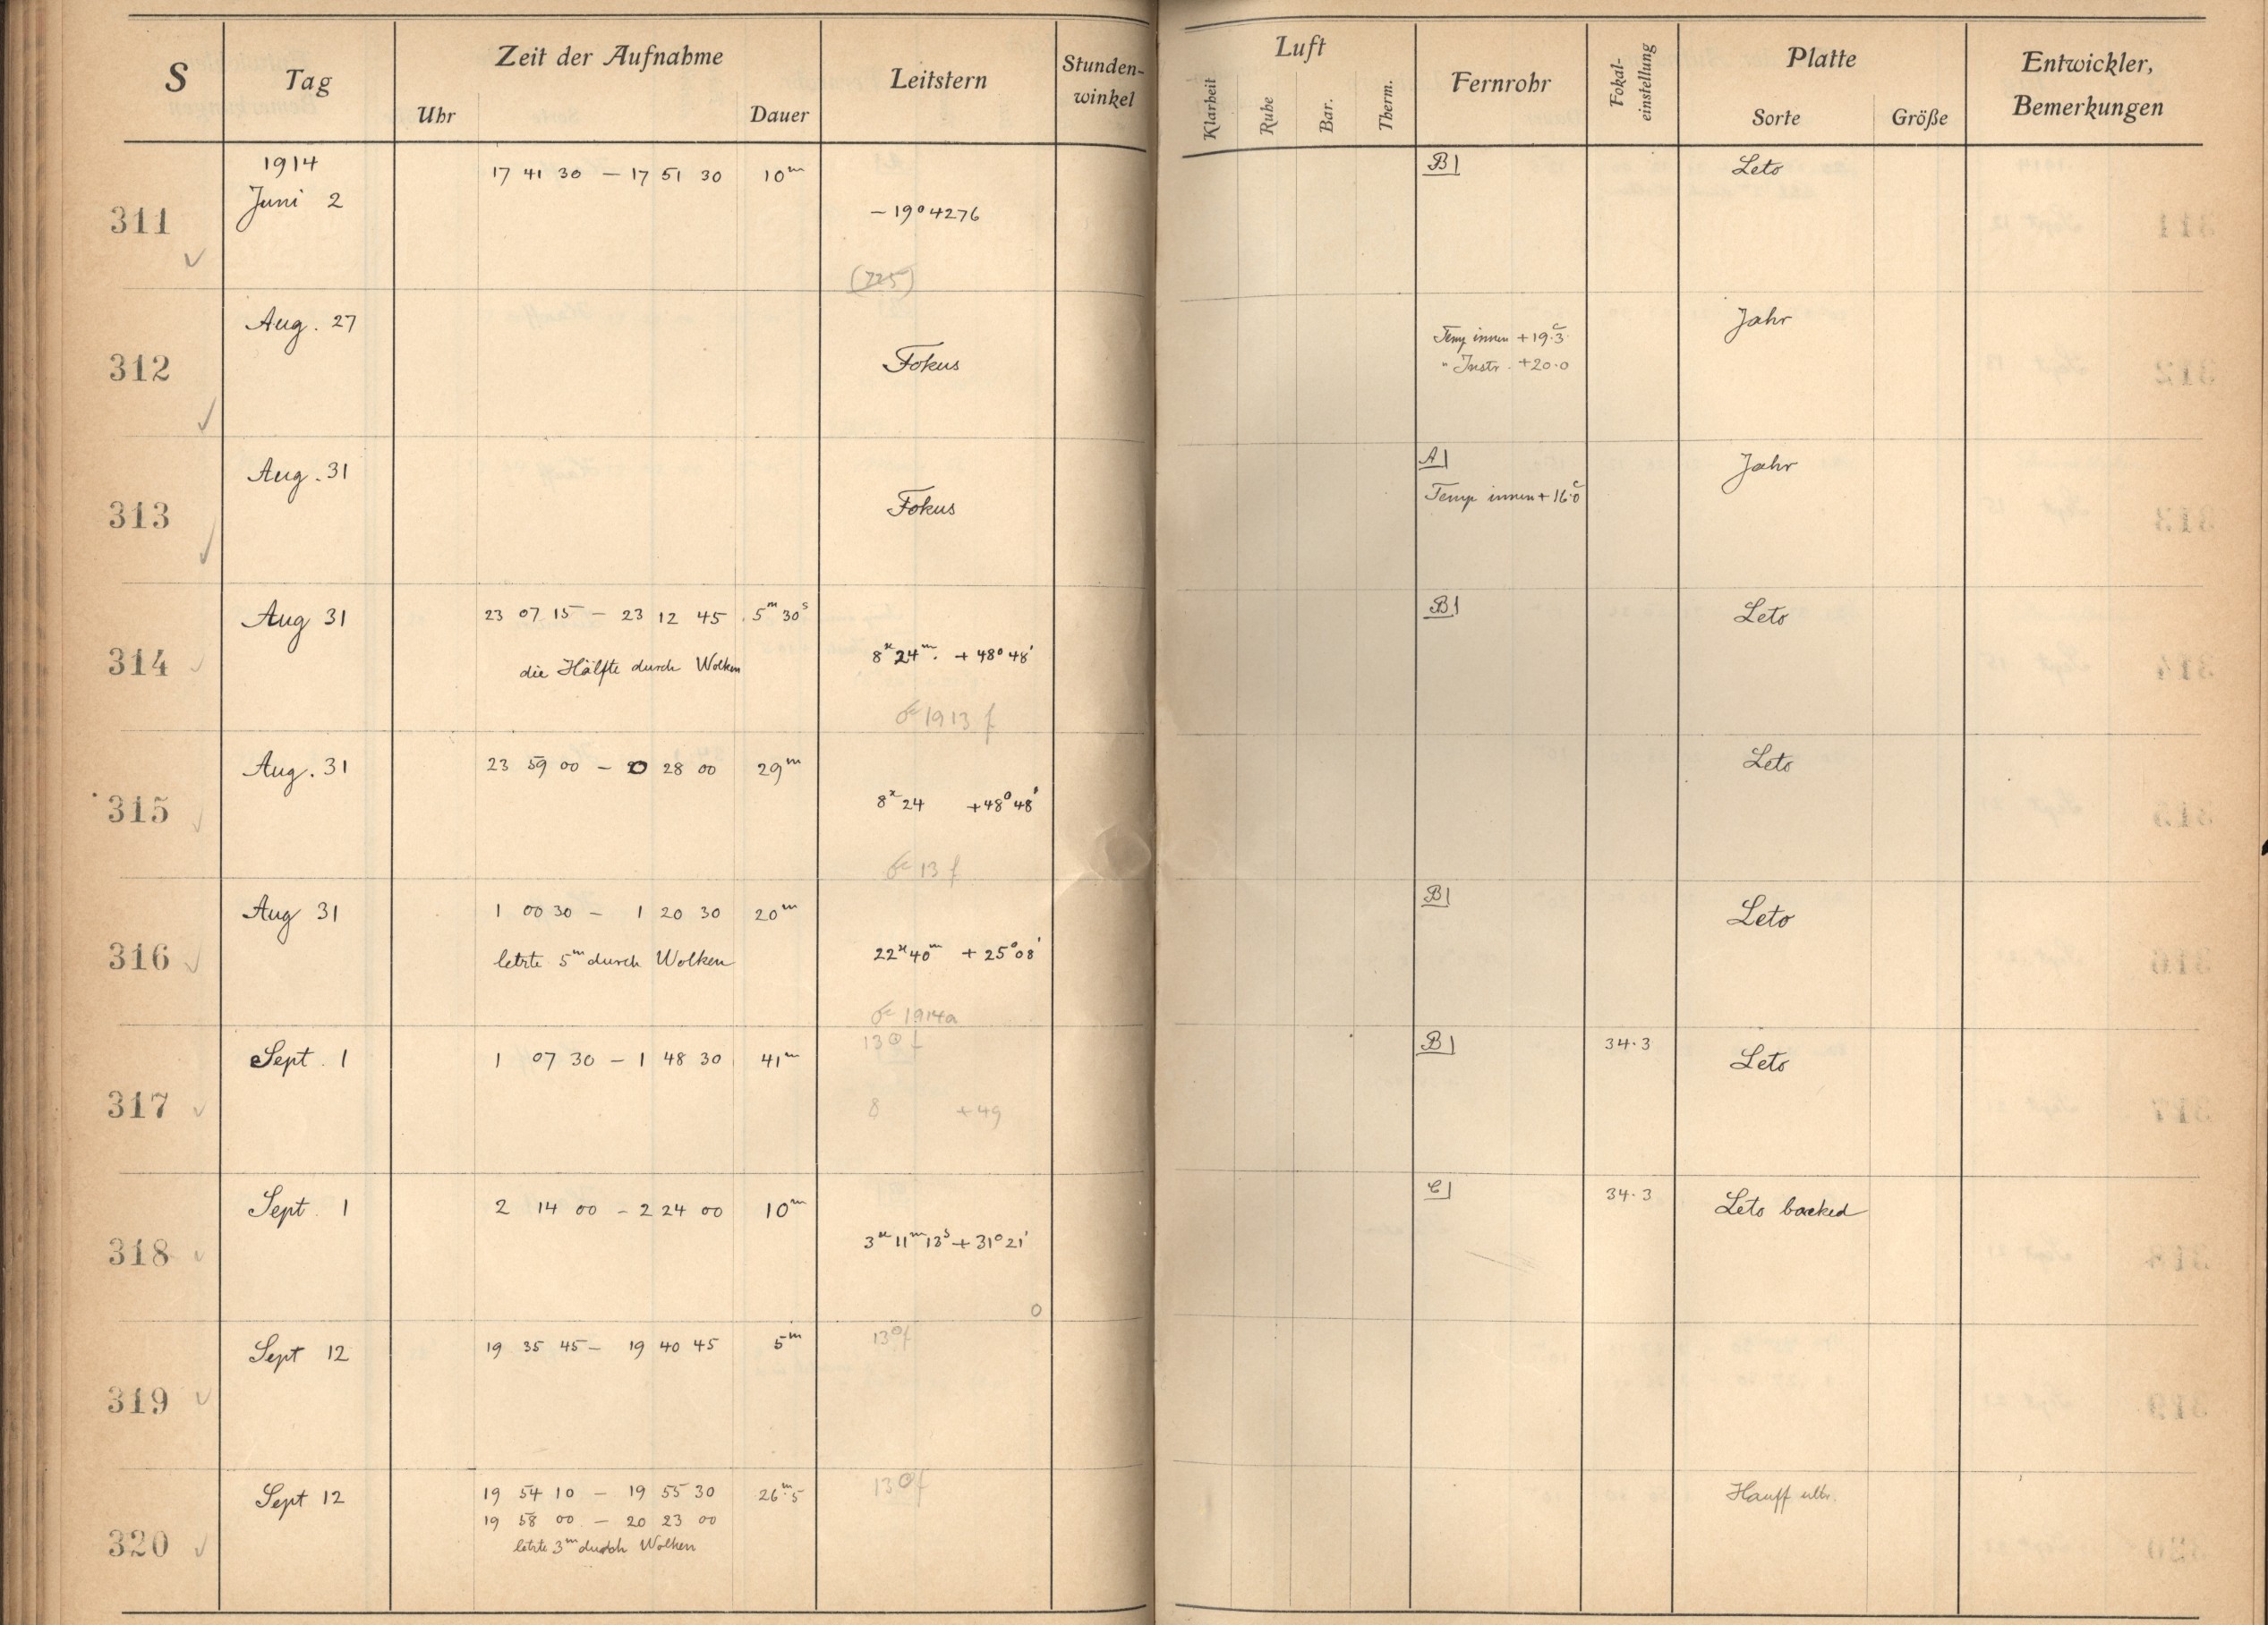 S Tag Zeit der Aufnahme Leitstern Stunden-winkel Luft Fernrohr Fokal-einstellung Platte Entwickler, Bemerkungen
Uhr Dauer Klarheit Ruhe Bar. Therm. Sorte Größe
311 1914 Juni 2 17 41 30 – 17 51 30 10m B Leto
– 19° 4276
(725)
312 Aug. 27 Fokus Temp innen + 19.3 C Jahr
" Instr. + 20.0
313 Aug. 31 Fokus A Jahr
Temp innen + 16.0 C
314 Aug 31 23 07 15 – 23 12 45 5m 30s B Leto
die Hälfte durch Wolken 8 24m + 48° 48'
1913 f
315 Aug. 31 23 59 00 – 0 28 00 29m Leto
8 24 + 48° 48'
13 f
316 Aug 31 1 00 30 – 1 20 30 20m B Leto
letzte 5m durch Wolken 22 40m + 25° 08'
1914a
317 Sept. 1 1 07 30 – 1 48 30 41m 13 f B 34.3 Leto
8 + 49
318 Sept. 1 2 14 00 – 2 24 00 10m C 34.3 Leto backed
3 11m 13s + 31° 21'
0
319 Sept 12 19 35 45 – 19 40 45 5m 13 f
320 Sept 12 19 54 10 – 19 55 30 26m.5 13 f Hauff
19 58 00 – 20 23 00
letzte 3m durch Wolken